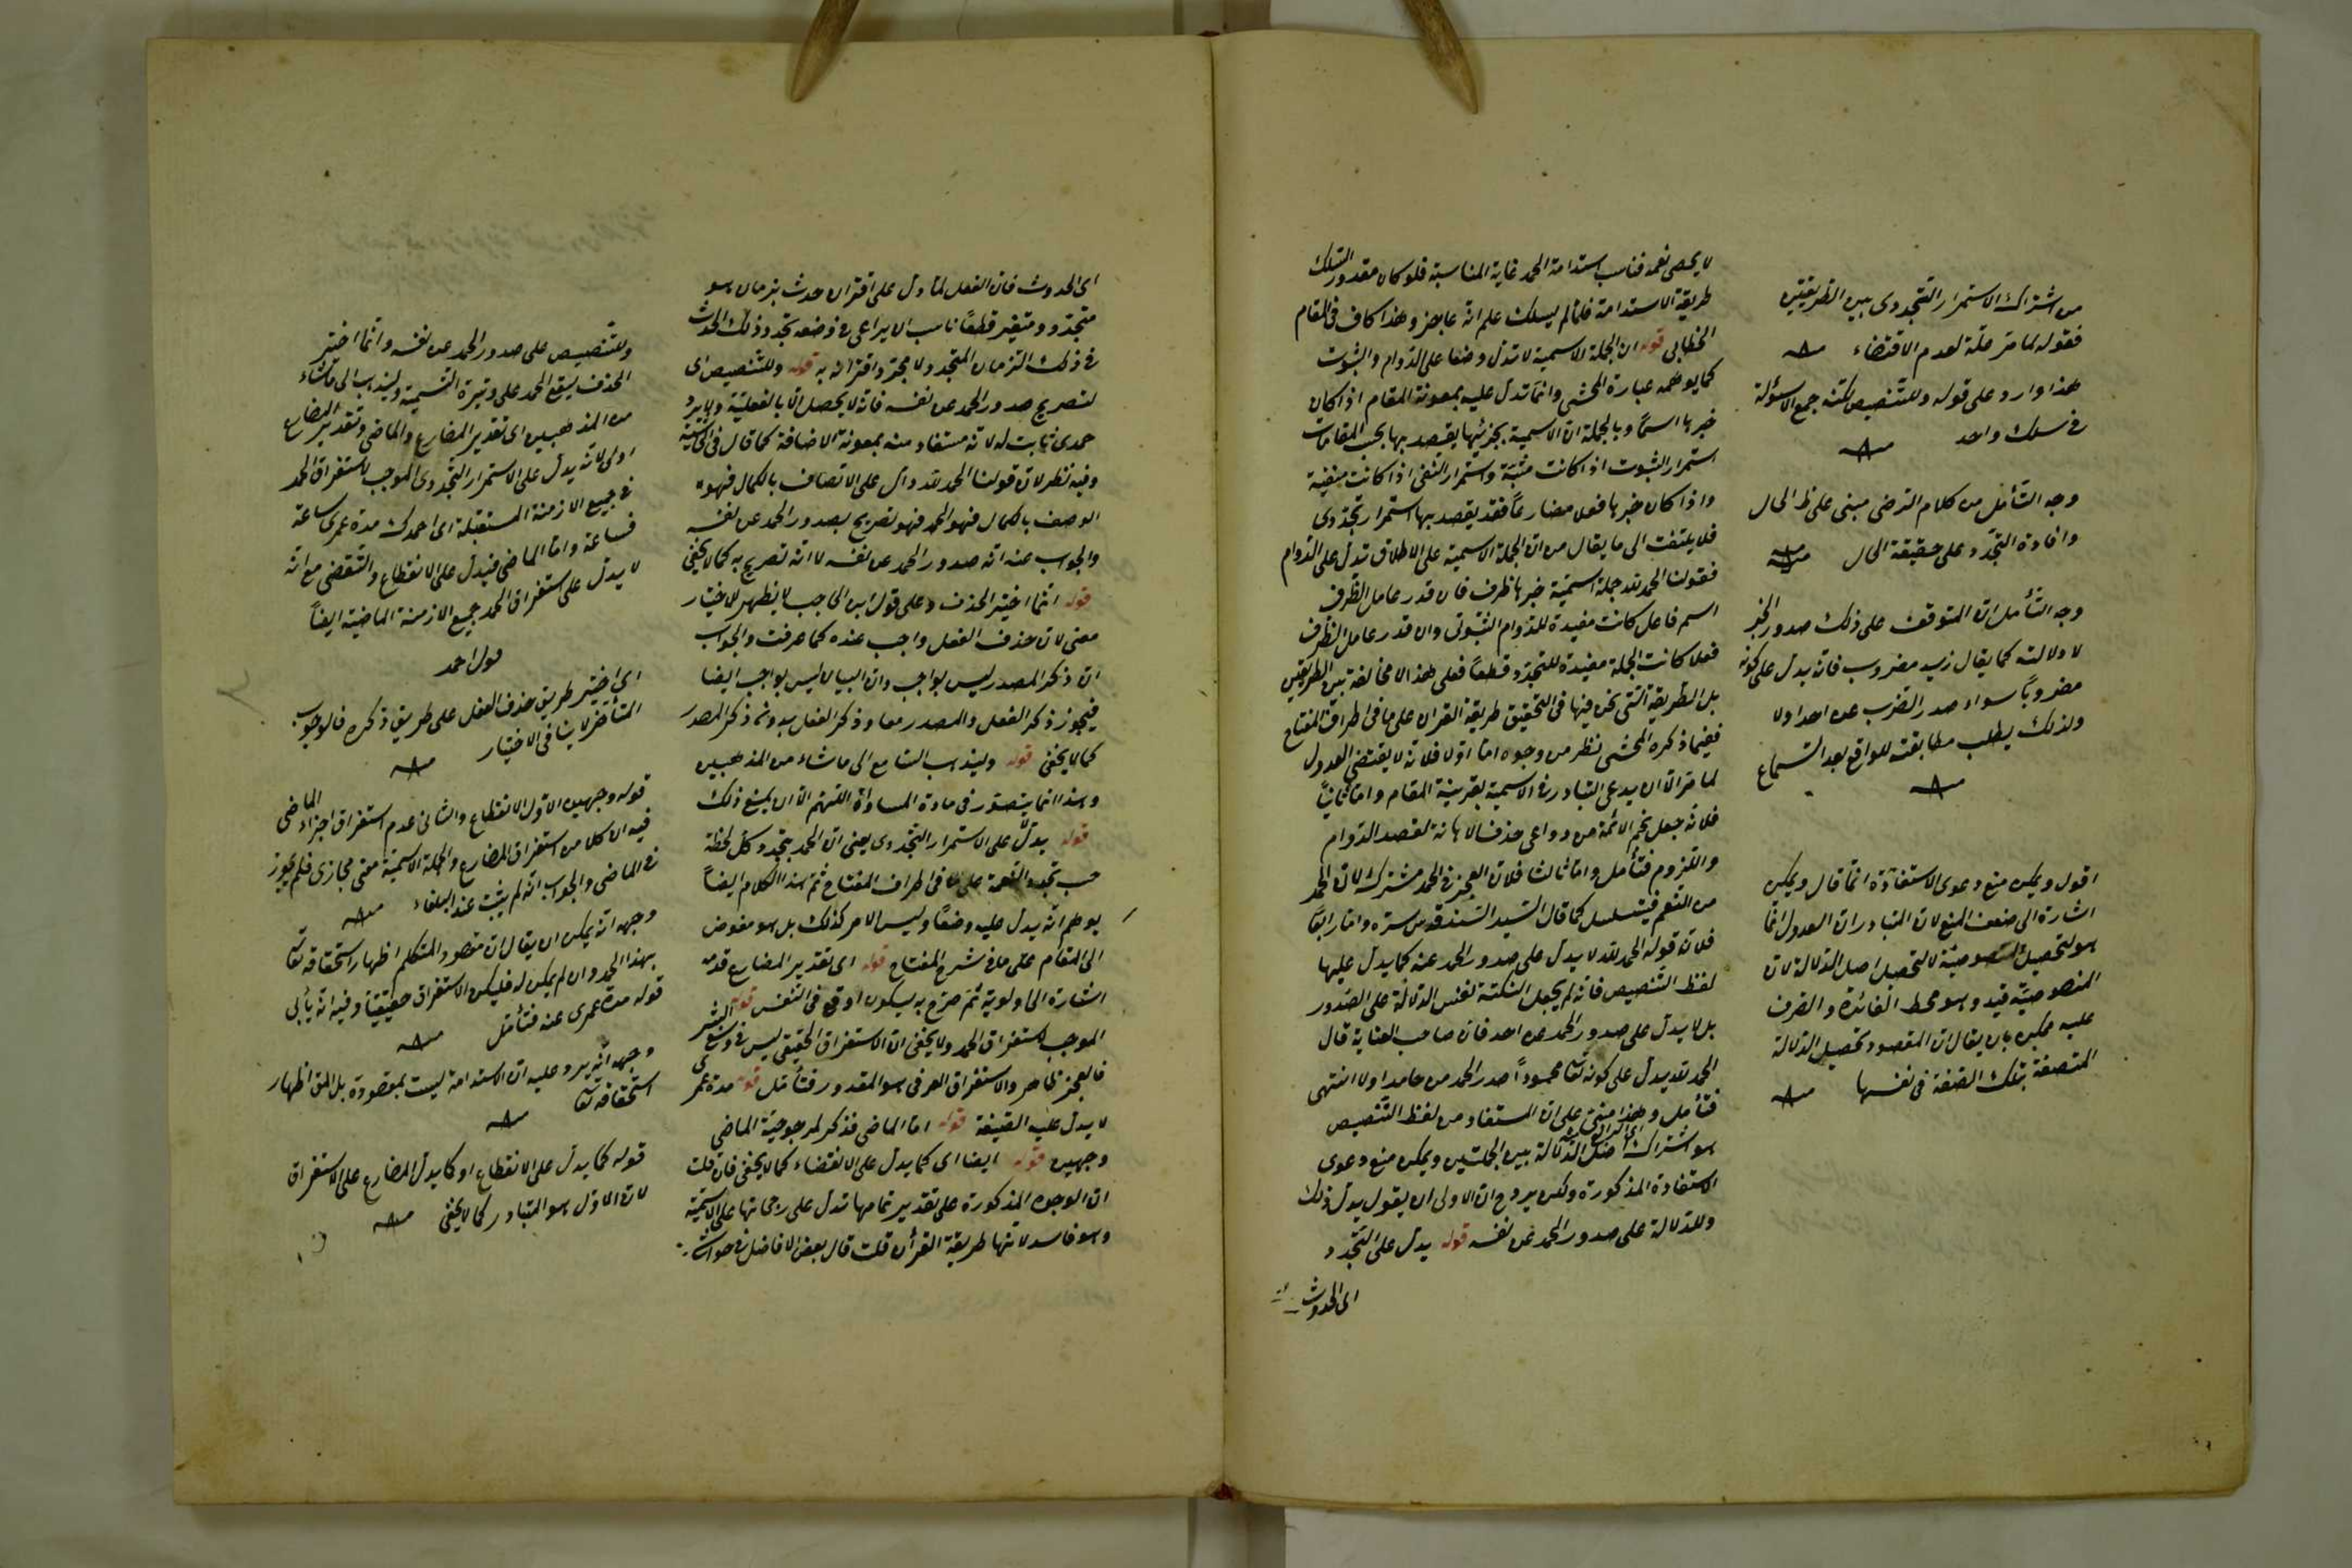 لا يحصى نعمه فناسب استدامة الحمد غاية المناسبة فلو كان مقدور التسلك
طريقة الاستدامة فلما لم يسلك علم انه عاجز وهذا كاف في المقام
الخطابي قوله ان الجملة الاسمية لا تدل وضعا على الدوام والثبوت
كما يوهمه عبارة المحشى وانما تدل عليه بمعونة المقام اذا كان
خبرها اسمًا وبالجملة ان الاسمية بجزئيها يقصد بها بحسب المقامات
استمرار الثبوت اذا كانت مثبتة واستمرار النفى اذا كانت منفية
واذا كان خبرها فعلا مضارعًا فقد يقصد بها استمرار تجددى
فلا يلتفت الى ما يقال من ان الجملة الاسمية على الاطلاق تدل على الدوام
فقولنا الحمد لله جملة اسمية خبرها ظرف فان قدر عامل الظرف
اسم فاعل كانت مفيدة للدوام الثبوتى وان قدر عامل الظرف
فعلا كانت الجملة مفيدة للتجدد قطعًا فعلى هذا لا مخالفة بين الطريقين
بل الطريقة التى نحن فيها في التحقيق طريقة القرآن على ما في اطراف المفتاح
ففيما ذكره المحشى نظر من وجوه اما اولا فلانه لا يقتضى العدول
لما مر الا ان يدعى التبادر في الاسمية بقرينة المقام واما ثانيًا
فلانه جعل نجم الائمة من دواعى حذف الابانة لقصد الدوام
واللزوم فتأمل واما ثالثا فلان العجز في الحمد مشترك لان الحمد
من النعم فيتسلسل كما قال السيد السند قدس سره واما رابعًا
فلان قوله الحمد لله لا يدل على صدور الحمد عنه كما يدل عليها
لفظ التنصيص فانه لم يجعل النكتة لنفس الدلالة على الصدور
بل لا يدل على صدور الحمد عن احد فان صاحب العناية قال
الحمد لله يدل على كونه تعالى محمودًا صدر الحمد من حامد اولا انتهى
فتأمل وهذا مبنى على ان المستفاد من لفظ التنصيص
هو اشتراك اصل الدلالة بين الجملتين ويمكن منع دعوى
الاستفادة المذكورة ولكن يروح ان الاولى ان يقول يدل ذلك
وللدلالة على صدور الحمد عن نفسه قوله يدل على التجدد
اى الحدوث
من اشتراك الاستمرار التجددى بين الطريقتين
فقوله لما مر علة لعدم الاقتضاء
هذا وارد على قوله وللتنصيص لكنه جمع الاسؤلة
في سلك واحد
وجه التأمل من كلام الرضى مبنى على ظ الحال
وافادة التجدد على حقيقة الحال
وجه التأمل ان المتوقف على ذلك صدور الخبر
لا دلالته كما يقال زيد مضروب فانه يدل على كونه
مضروبًا سواء صدر الضرب عن احد اولا
ولذلك يطلب مطابقته للواقع بعد السماع
اقول ويمكن منع دعوى الاستفادة انما قال ويمكن
اشارة الى ضعف المنع لان المتبادر ان العدول انما
هو لتحصيل المنصوصية لا لتحصيل اصل الدلالة لان
المنصوصية قيد وهو محط الفائدة والصرف
عليه ممكن بان يقال ان المقصود تحصيل الدلالة
المتصفة بتلك الصفة في نفسها
اى الحدوث فان الفعل لما دل على اقتران حدث بزمان هو
متجدد ومتغير قطعًا ناسب ان يراعى في وضعه تجدد ذلك الحدث
في ذلك الزمان المتجدد لا مجرد اقترانه به قوله وللتنصيص اى
لتصريح صدور الحمد عن نفسه فانه لا يحصل الا بالفعلية ولا يرد
حمدى ثابت له لانه مستفاد منه بمعونة الاضافة كما قال في الحاشية
وفيه نظر لان قولنا الحمد لله دال على الاتصاف بالكمال فهو
الوصف بالكمال فهو الحمد فهو تصريح بصدور الحمد عن نفسه
والجواب عنه انه صدور الحمد عن نفسه لا انه تصريح به كما لا يخفى
قوله انما اختير الحذف وعلى قول ابن الحاجب لا يظهر للاختيار
معنى لان حذف الفعل واجب عنده كما عرفت والجواب
ان ذكر المصدر ليس بواجب وان البيان ليس بواجب ايضا
فيجوز ذكر الفعل والمصدر معا وذكر الفعل بدون ذكر المصدر
كما لا يخفى قوله وليذهب السامع الى ما شاء من المذهبين
وهذا انما يتصور في مادة المساواة اللهم الا ان يمنع ذلك
قوله يدل على الاستمرار التجددى يعنى ان الحمد يتجدد كل لحظة
حسب تجدد النعمة على ما في اطراف المفتاح ثم هذا الكلام ايضًا
يوهم انه يدل عليه وضعًا وليس الامر كذلك بل هو مفوض
الى المقام على ما في شرح المفتاح قوله اى تقدير المضارع قدمه
اشارة الى اولويته ثم صرح به ليكون اوقع في النفس قوله
الموجب لاستغراق الحمد ولا يخفى ان الاستغراق الحقيقى ليس في وسع البشر
فالعجز ظاهر والاستغراق العرفى هو المقدور فتأمل قوله مدة عمرى
لا يدل عليه الصيغة قوله اما الماضى فذكر لمرجوحية الماضى
وجهين قوله ايضا اى كما يدل على الانقضاء كما لا يخفى فان قلت
ان الوجوه المذكورة على تقدير تمامها تدل على رجحانها على الاسمية
وهو فاسد لانها طريقة القرآن قلت قال بعض الافاضل في حواشيه
وللتنصيص على صدور الحمد عن نفسه وانما اختير
الحذف ليقع الحمد على وتيرة التسمية وليذهب الى ما شاء
من المذهبين اى تقدير المضارع والماضى وتقدير المضارع
اولى لانه يدل على الاستمرار التجددى الموجب لاستغراق الحمد
في جميع الازمنة المستقبلة اى احمدك مدة عمرى ساعة
فساعة واما الماضى فيدل على الانقطاع والتقضى مع انه
لا يدل على استغراق الحمد جميع الازمنة الماضية ايضًا
اى اختير طريق حذف الفعل على طريق ذكره فالوجوب
المتأخر لا ينافى الاختيار
قوله وجهين الاول الانقطاع والثانى عدم استغراق اجزاء الماضى
فيه ان كلا من استغراق المضارع والجملة الاسمية معنى مجازى فلم يجوز
في الماضى والجواب انه لم يثبت عند البلغاء
وجهه انه يمكن ان يقال ان مقصود المتكلم اظهار استحقاقه تعالى
بهذا الحمد وان لم يمكن له فليكن الاستغراق حقيقيًا وفيه انه يأبى
قوله مدة عمرى عنه فتأمل
وجهه انه يرد عليه ان الاستدامة ليست بمقصودة بل المق اظهار
استحقاقه تعالى
قوله كما يدل على الانقطاع او كما يدل المضارع على الاستغراق
لان الاول هو المتبادر كما لا يخفى